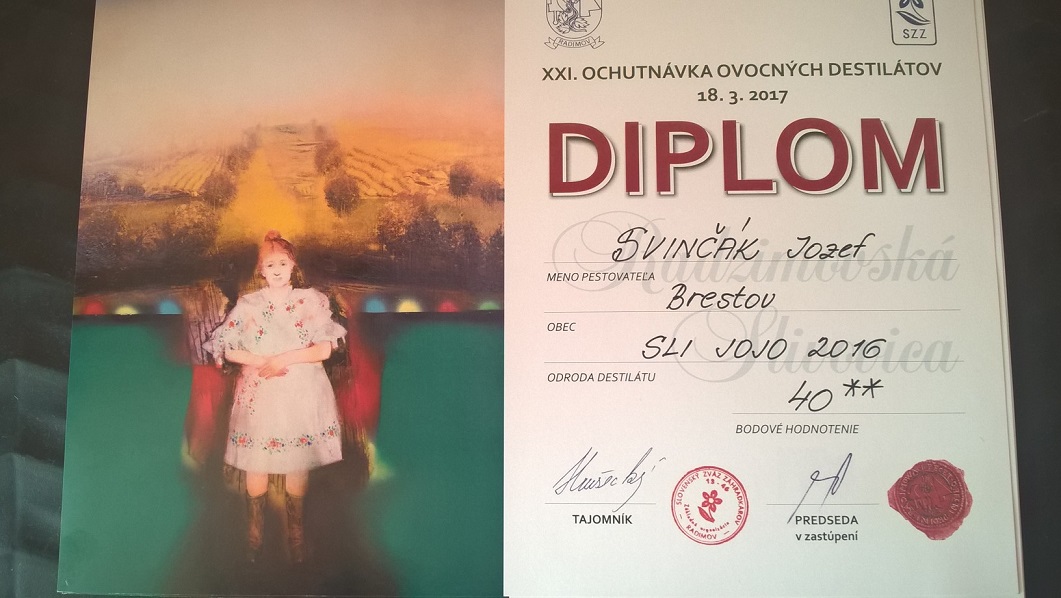 RADIMOV
SZZ
XXI. OCHUTNÁVKA OVOCNÝCH DESTILÁTOV
18. 3. 2017
DIPLOM
Radzimovská
Slivovica
SVINČÁK Jozef
MENO PESTOVATEĽA
Brestov
OBEC
SLI JOJO 2016
ODRODA DESTILÁTU
40**
BODOVÉ HODNOTENIE
TAJOMNÍK
SLOVENSKÝ ZVÄZ ZÁHRADKÁROV
13-46
Základná organizácia
RADIMOV
PREDSEDA
v zastúpení